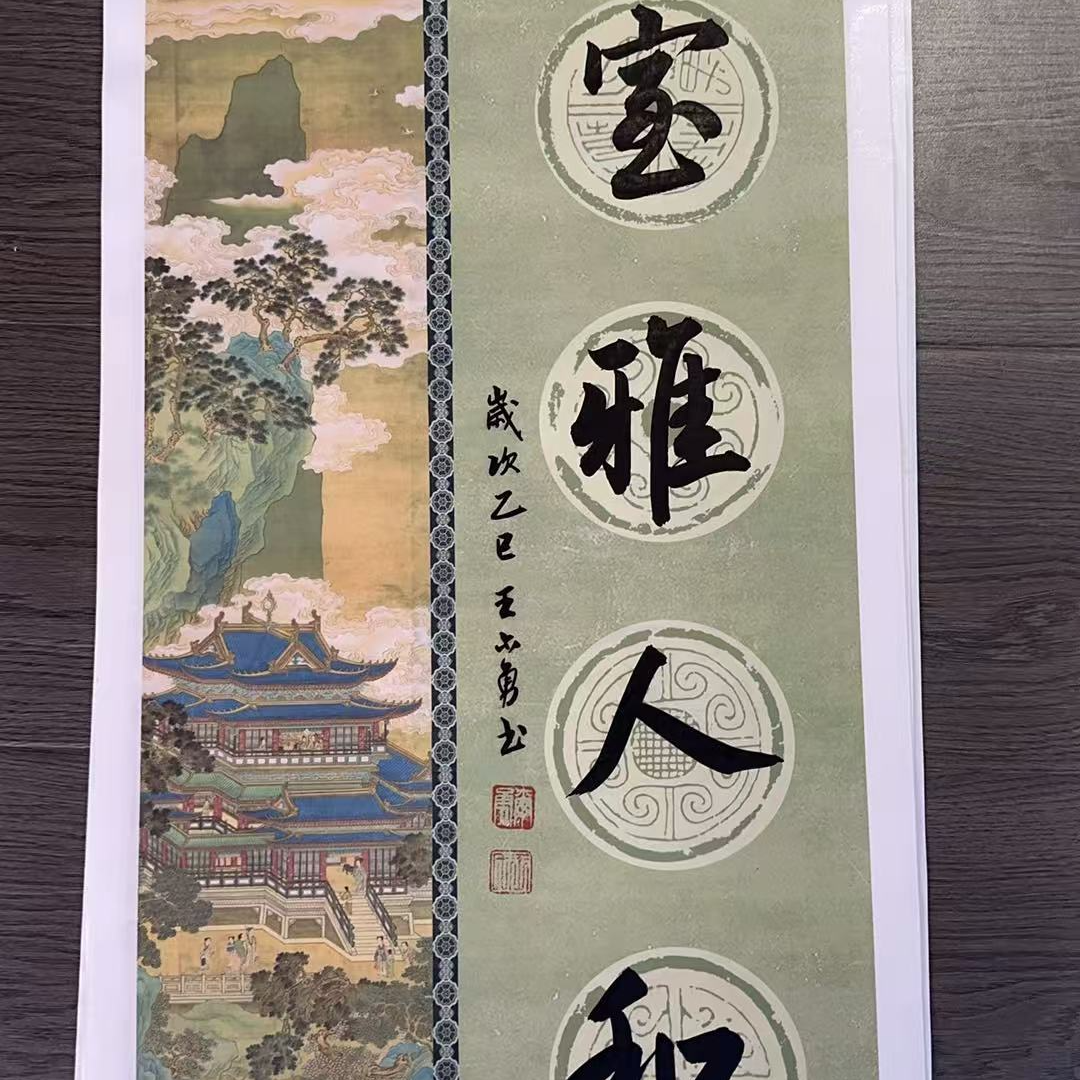 室雅人和
歲次乙巳 王 勇书